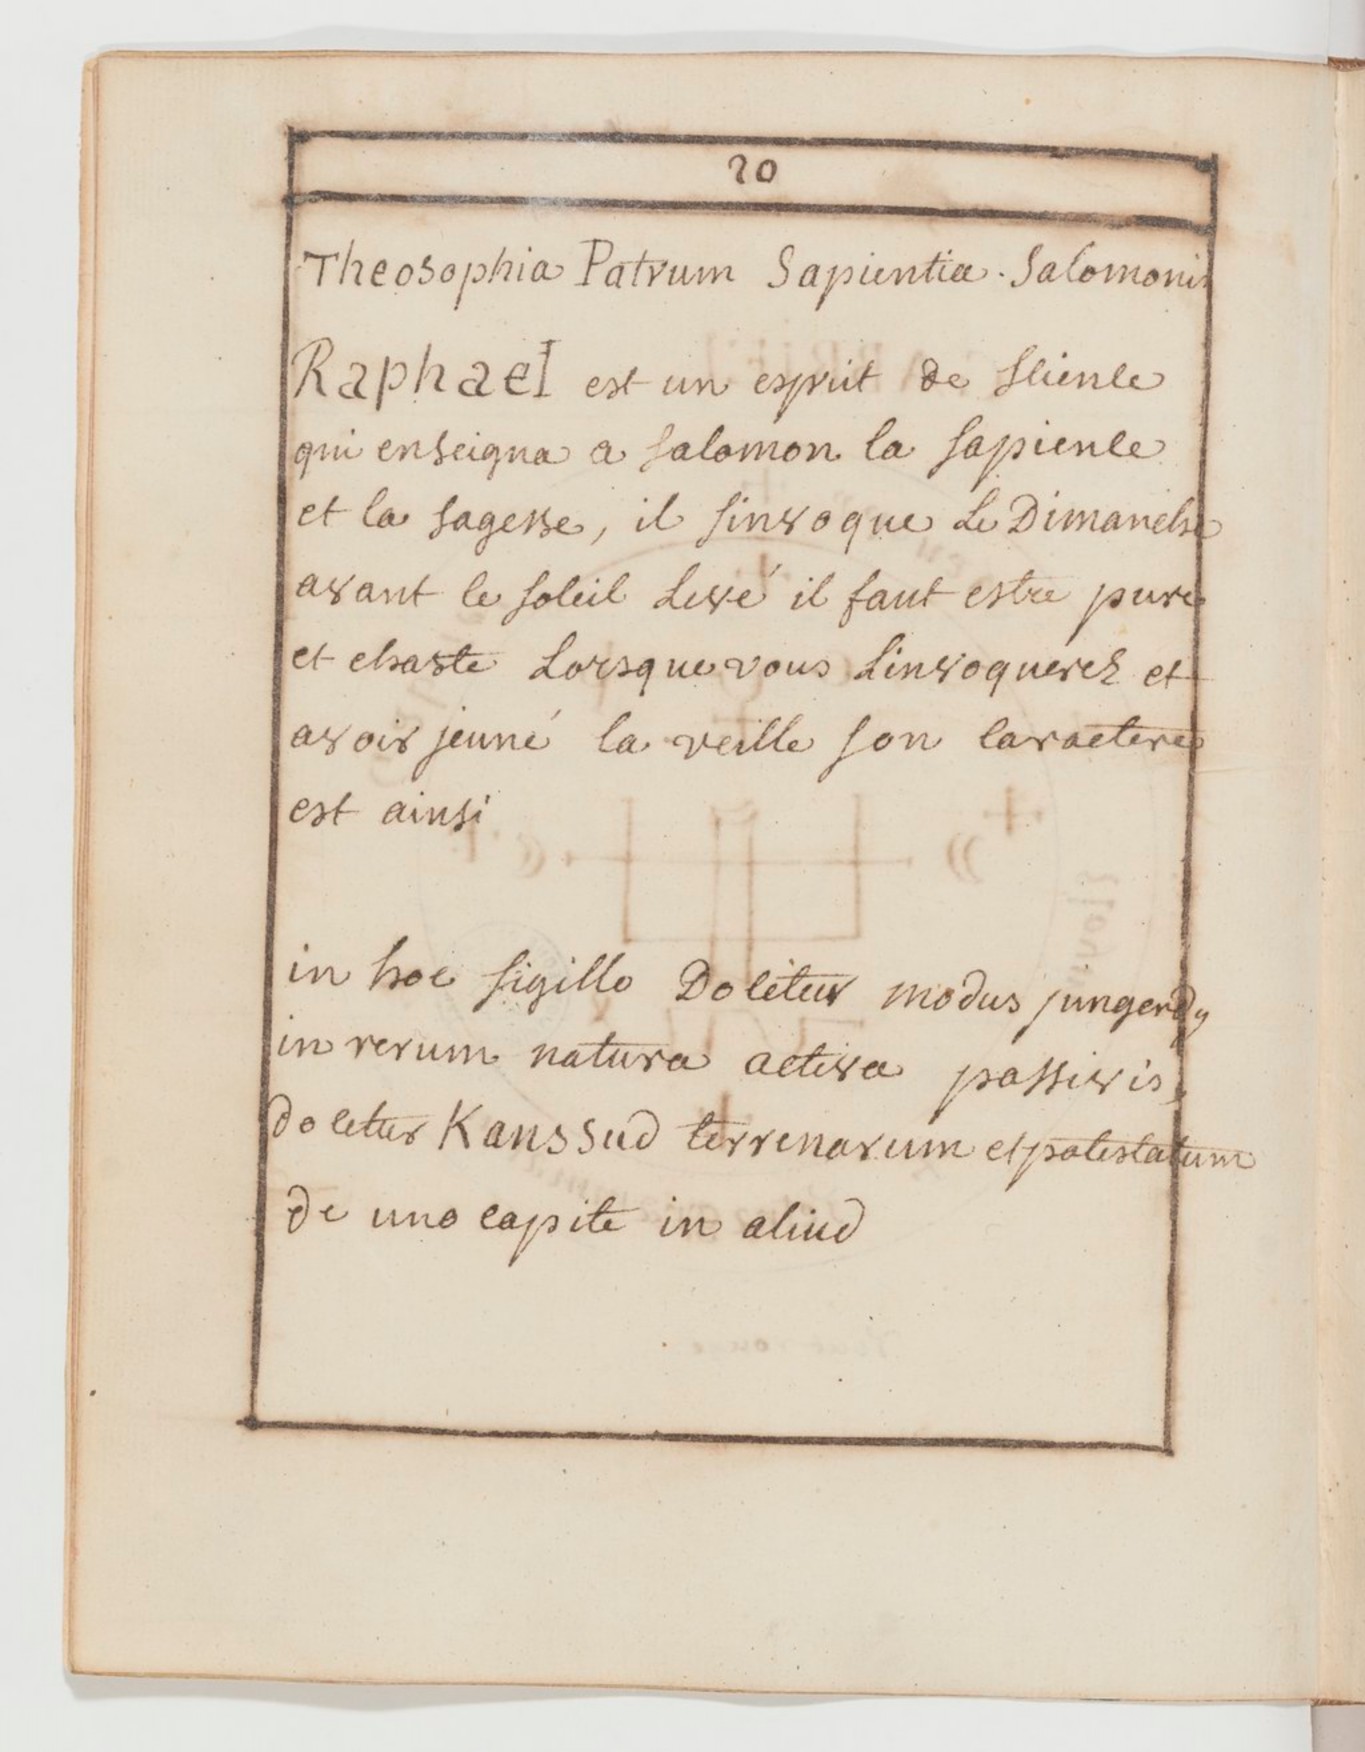 20
Theosophia Patrum Sapientia. Salomonis
Raphael est un esprit de science
qui enseigna a salomon la sapience
et la sagesse, il sinvoque Le Dimanche
avant le soleil Levé il faut estre pure
et chaste Lorsque vous Linvoquerez et
avoir jeuné la veille son caractere
est ainsi
in hoc sigillo Docetur modus jungendy
in rerum natura activa passivis,
docetur Kanssud terrenarum et potestatum
de uno capite in aliud